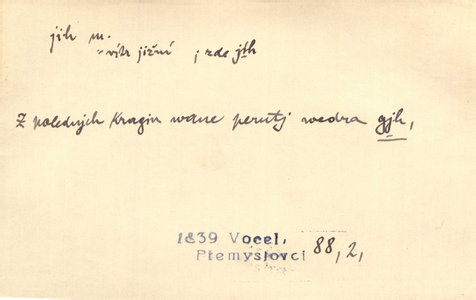 jih m.
= vítr jižní ; zde jih
Z poledných Kragin wane perutj wedra gjh,
1839 Vocel,
Přemyslovci 88, 2,